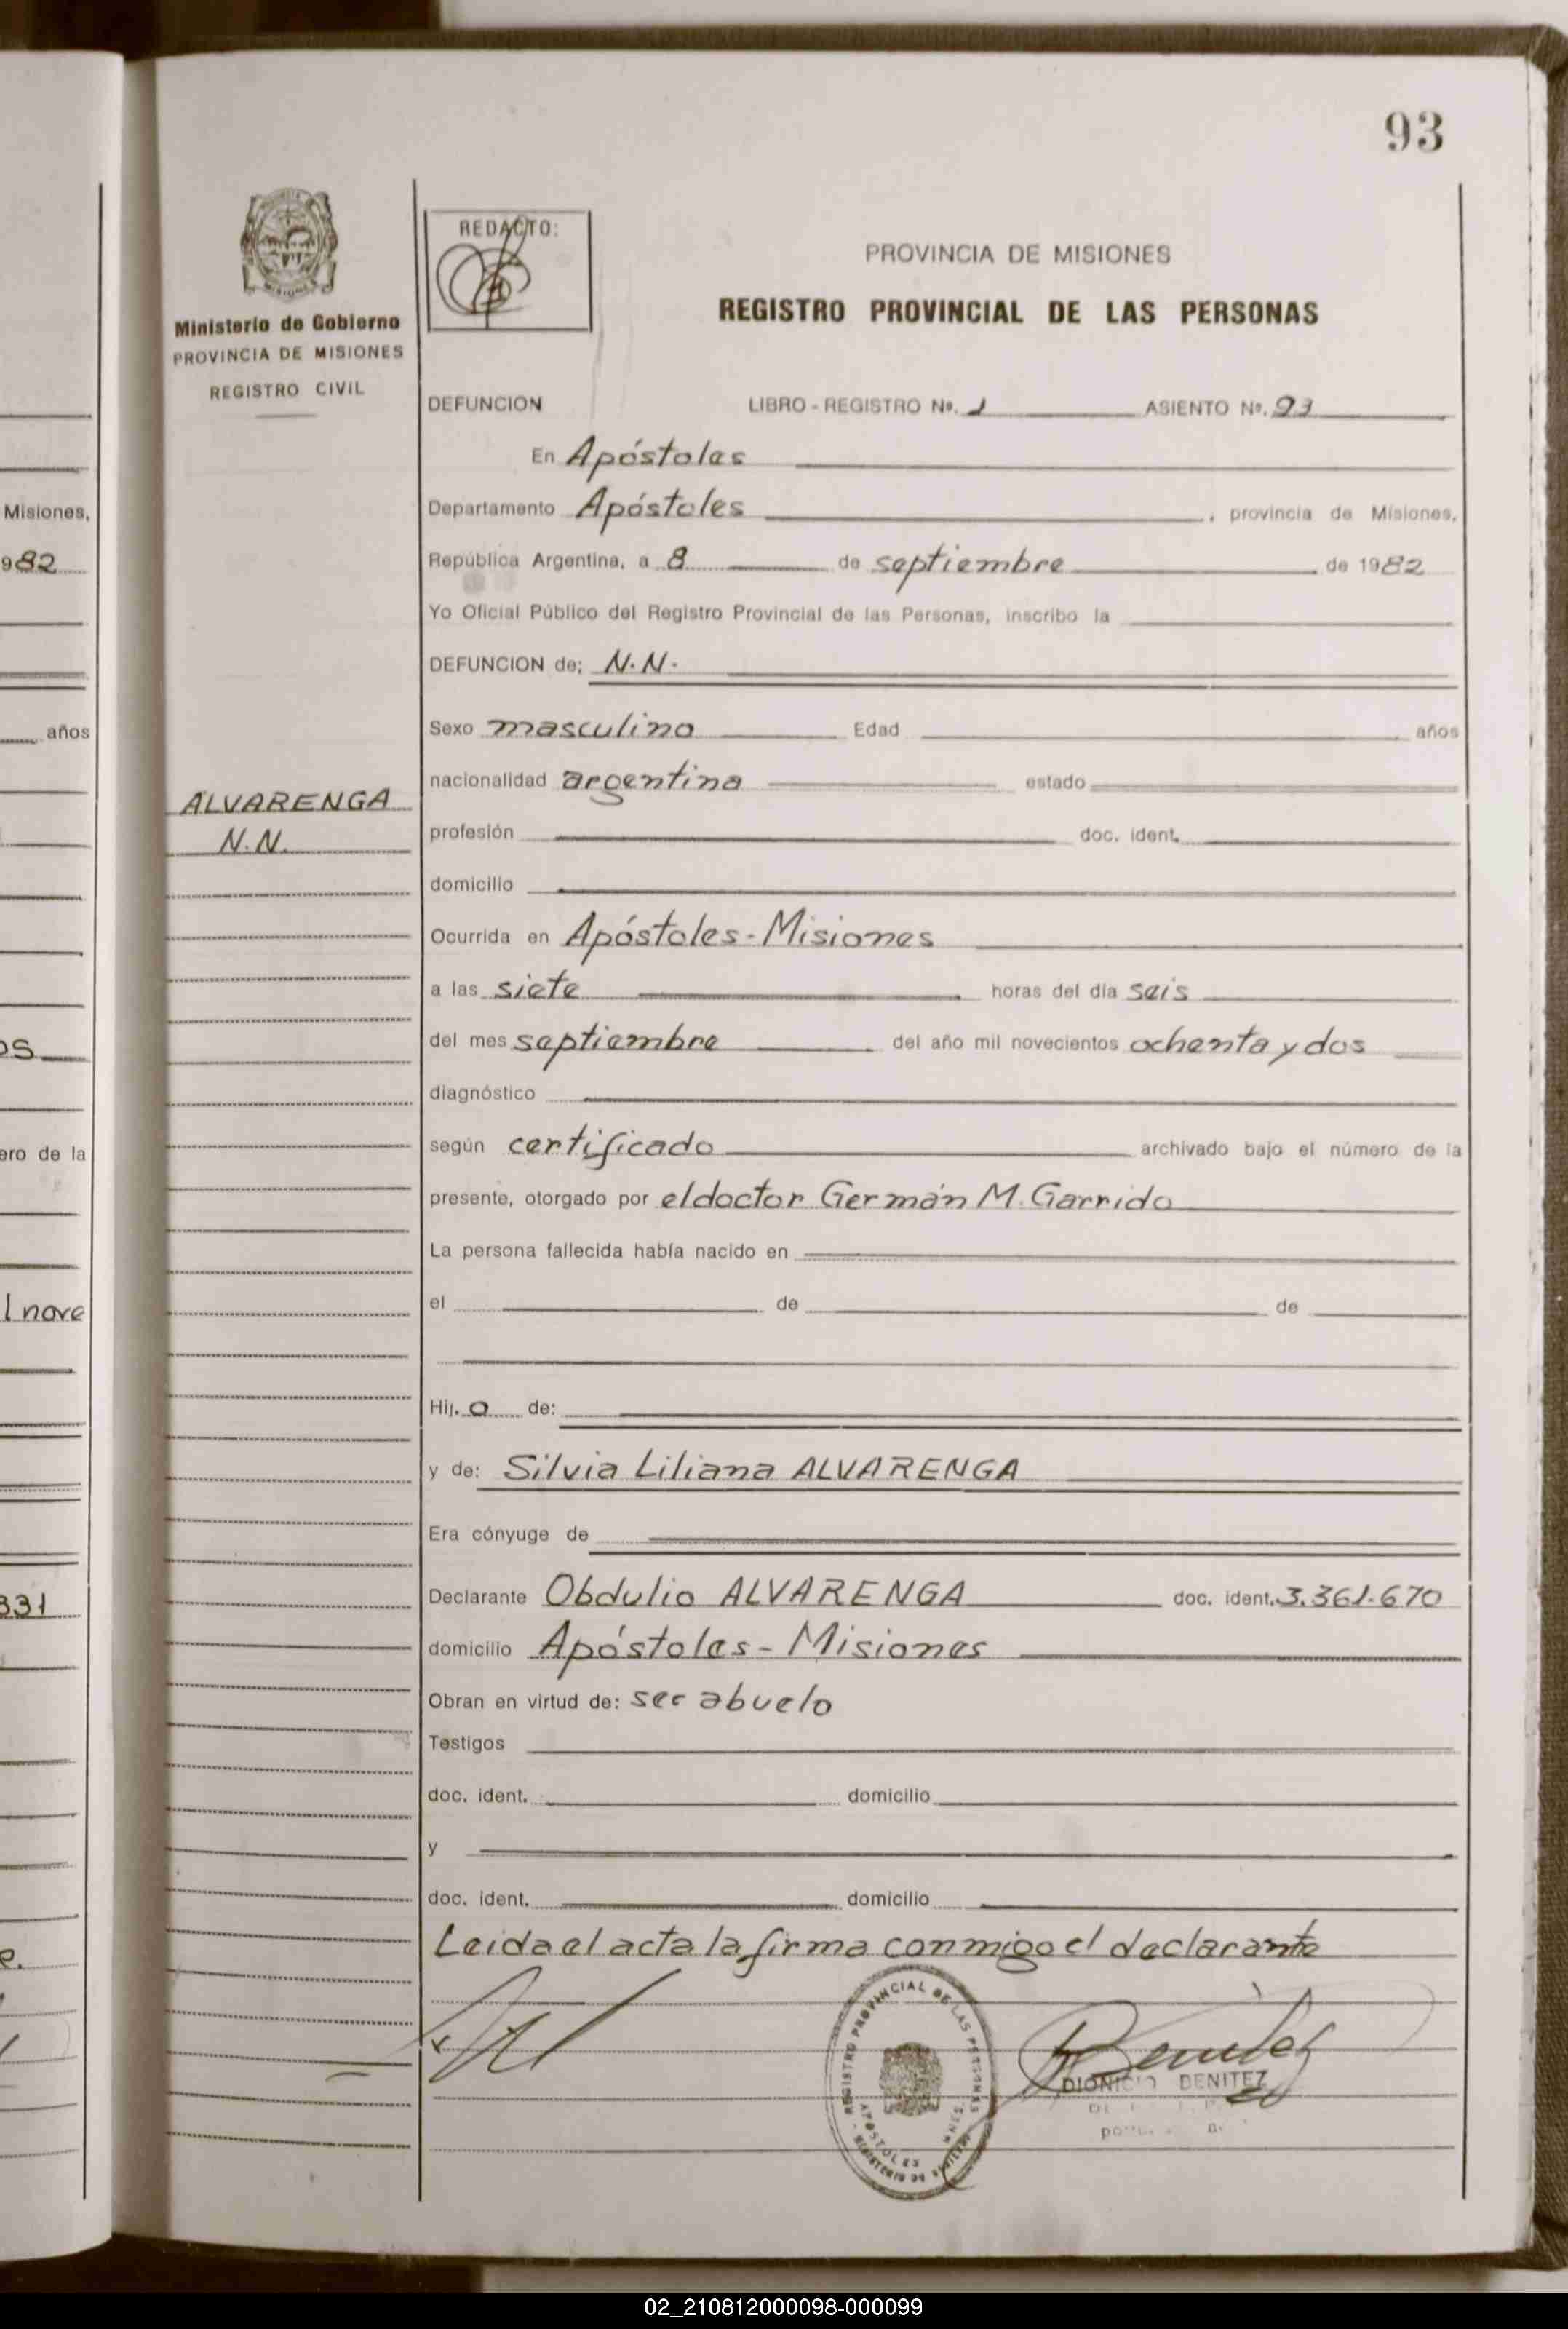 93
REDACTO:
Ministerio de Gobierno
PROVINCIA DE MISIONES
REGISTRO CIVIL
PROVINCIA DE MISIONES
REGISTRO PROVINCIAL DE LAS PERSONAS
DEFUNCION LIBRO - REGISTRO Nº. 1 ASIENTO Nº. 93
En Apóstoles
Departamento Apóstoles, provincia de Misiones,
República Argentina, a 8 de septiembre de 1982
Yo Oficial Público del Registro Provincial de las Personas, inscribo la
DEFUNCION de; N.N.
Sexo masculino Edad años
nacionalidad argentina estado
ALVARENGA
N.N.
profesión doc. ident.
domicilio
Ocurrida en Apóstoles - Misiones
a las siete horas del día seis
del mes septiembre del año mil novecientos ochenta y dos
diagnóstico
según certificado archivado bajo el número de la
presente, otorgado por el doctor Germán M. Garrido
La persona fallecida había nacido en
el de de
Hij. o de:
y de: Silvia Liliana ALVARENGA
Era cónyuge de
Declarante Obdulio ALVARENGA doc. ident. 3.361.670
domicilio Apóstoles - Misiones
Obran en virtud de: ser abuelo
Testigos
doc. ident. domicilio
y
doc. ident. domicilio
Leida el acta la firma conmigo el declarante
REGISTRO PROVINCIAL DE LAS PERSONAS
APOSTOLES
Benitez
DIONICIO BENITEZ
Misiones,
1982
años
os
ero de la
l nove
331
e.
02_210812000098-000099